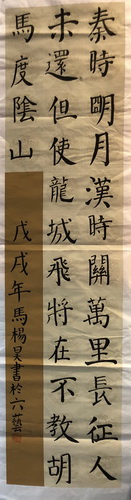 秦時明月漢時關萬里長征人
未還但使龍城飛將在不教胡
馬度陰山
戊戌年馬楊昊書於六藝